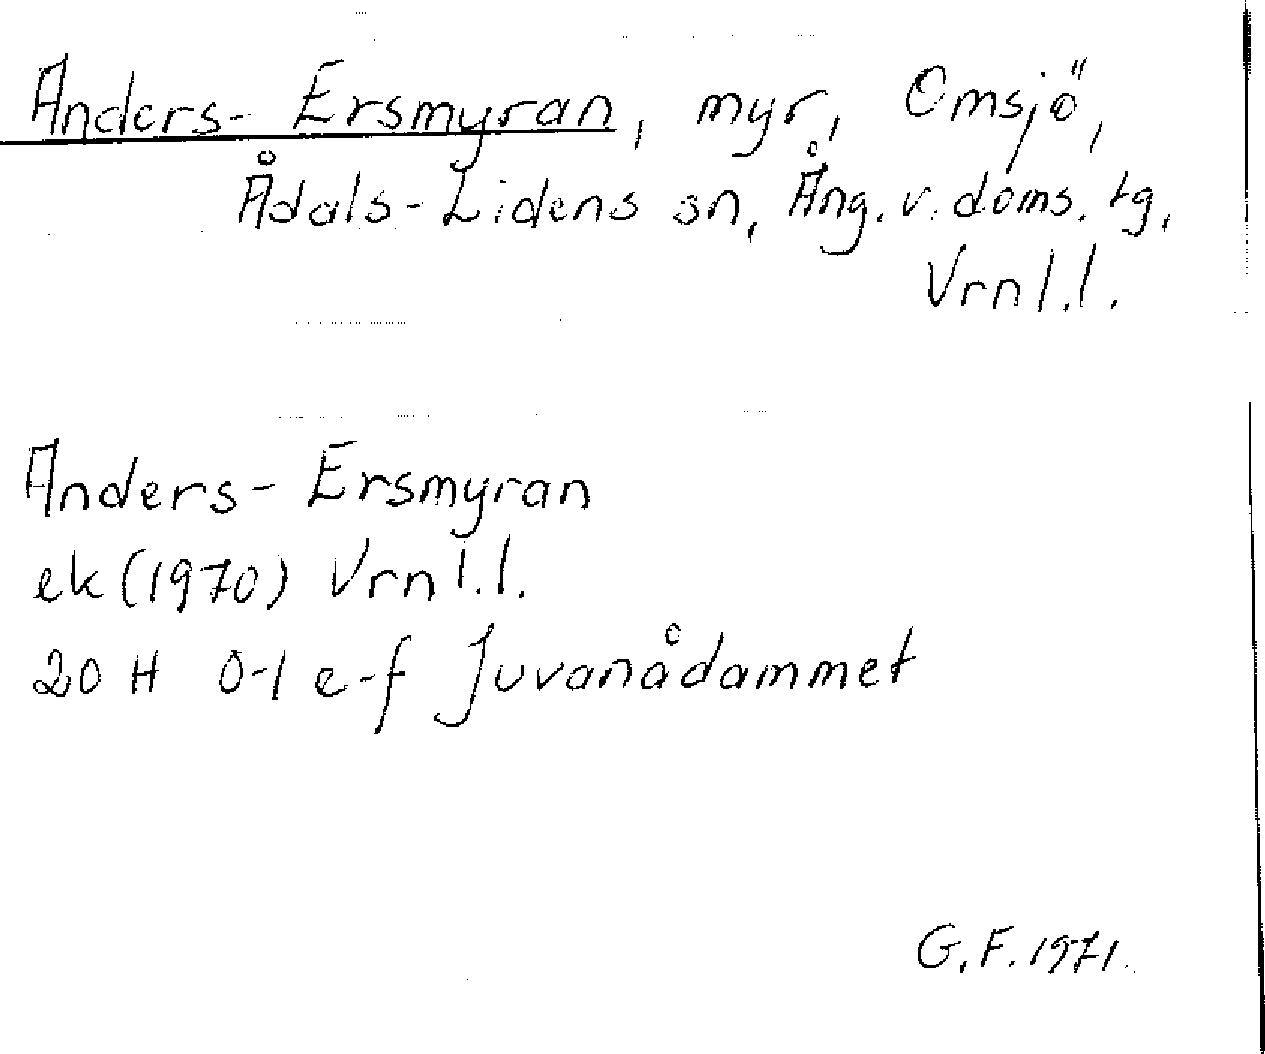 Anders-Ersmyran, myr, Omsjö,
Ådals-Lidens sn, Ång. v. doms. tg,
Vrnl.l.
Anders-Ersmyran
ek (1970) Vrnl.l.
20 H 0-1 e-f Juvanådammet
G.F. 1971.